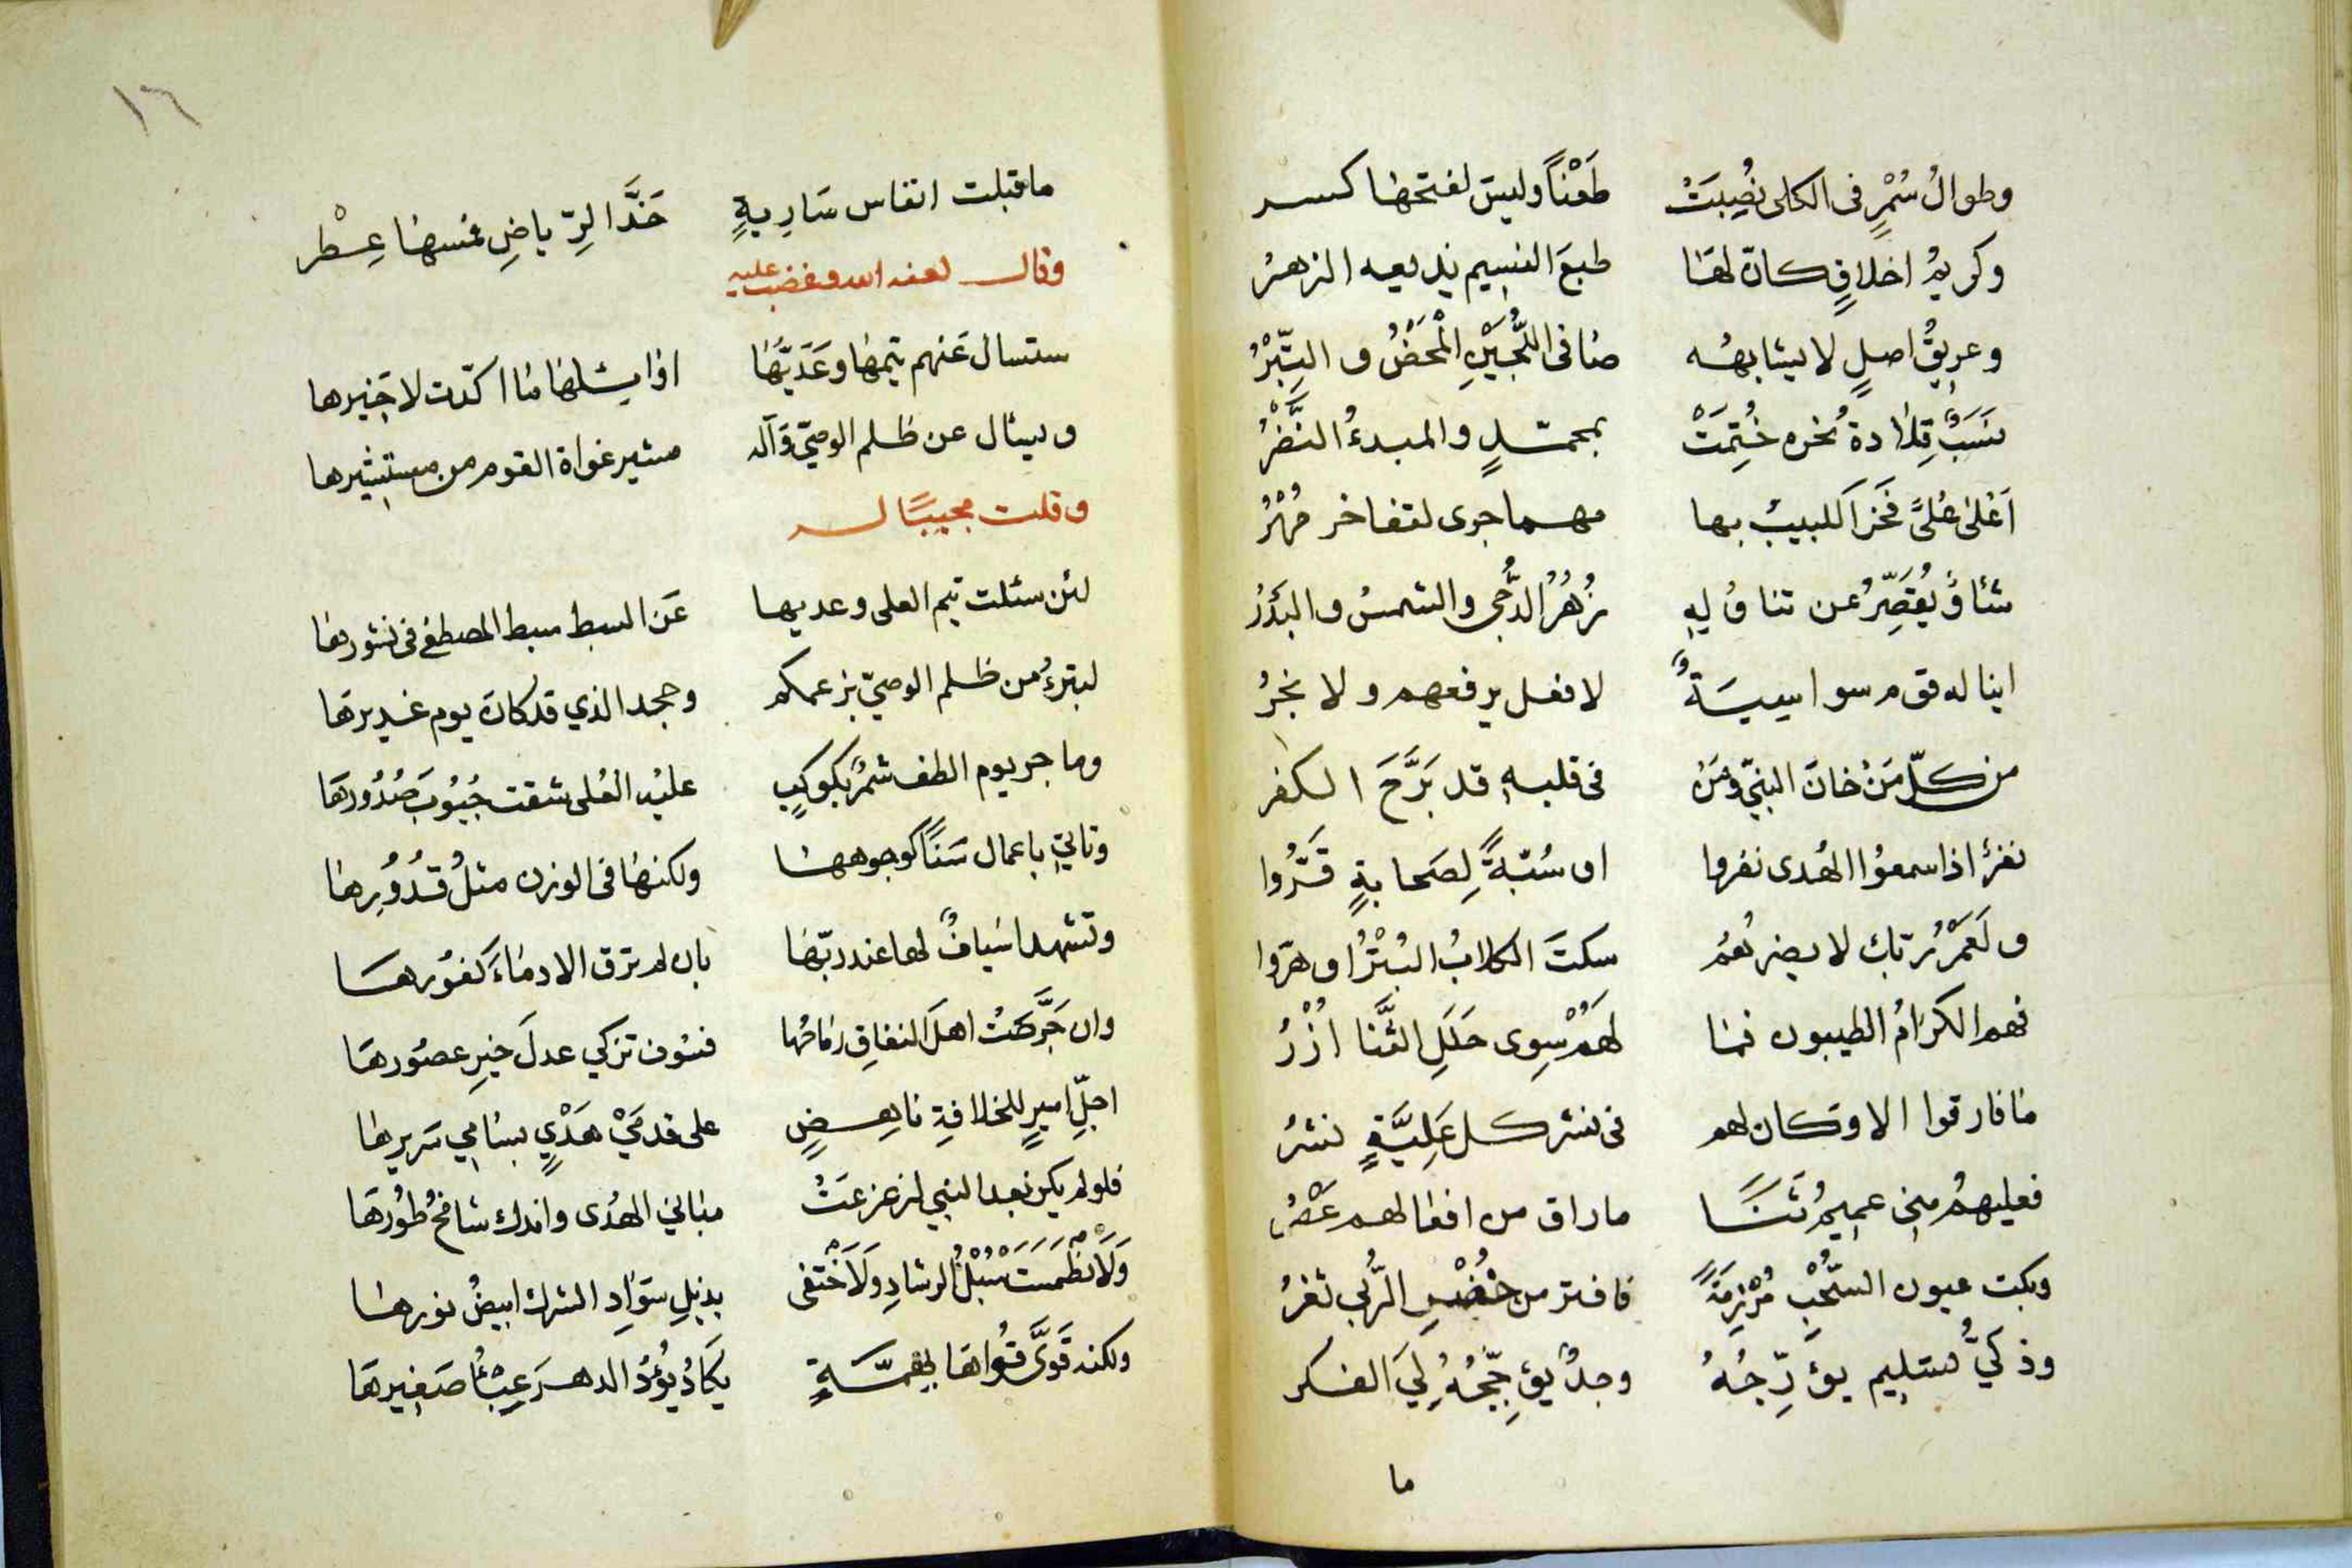 وطوالُ سُمْرٍ فى الكلى نُصِبَتْ طَعْناً وليسَ لفتحها كسر
وكريمُ اخلاقٍ كانّ لهَا طبعَ النسيم يذيعه الزهرُ
وعريقُ اصلٍ لا يشابهُه صَافى اللُّجَيْنِ الْمَحَضُ و التِّبْرُ
نسَبٌ قِلادة نُخره خُتِمَتْ بمحمّدٍ والمبدءُ النَّضْرُ
اَعْلىٰ عُلىً فَخرَ اَللبيبُ بها مهما جرى لتفاخر مُهْرُ
شئاوٌ يُقَصِّرُ عن تناوُلِهِ زُهُرُ الدُّجى والشمسُ والبَدْرُ
اينا له قوم سواسِيسَةٌ لا فعل يرفعهم ولا نجرُ
من كلّ مَنْ خانَ النبىّ ومَنْ فى قلبهِ قد بَرَّحَ الكفر
نفرٌ اذا سمعُوا الهُدى نفروا او سُبّةً لِصَحابةٍ قَرُّوا
ولَعَمْرُ ربّك لا يضرهُمُ سكتَ الكلابُ البُتْرُ او هرّوا
فهم الكرَامُ الطيبون فما لهَمُ سِوى حَلَلِ الثَّنا اُزْرُ
مَا فارقوا الا وكان لهم فى نشر كل عَلِيَّةٍ نشرُ
فعليهمُ مِنى عميمُ ثَنَاً ماراق من افعالهم عَصْرُ
وبكت عيون السّحْبِ مُرْزِمَةً فافتر من خُضْرِ الرُّبى ثغرُ
وذكيُّ تسليم يؤرِّجُهُ وجدٌ يؤجِّجُهُ لِيَ الفكر
ما
١٦
ما قبلت انفاس سَارِيةٍ خَدَّ الرِّياضِ فمسهَا عِطْر
وقال لعنه الله وغضب عليه
ستسال عَنهم تيمهَا وعَدَيّهَا اوايلهَا مَا اكدت لاخيرها
ويسئال عن ظلم الوصيّ وآله مشير غواة القوم من مستشيرها
وقلت مجيبًا له
لئن سئلت تيم العلى وعديها عَن السبط سبط المصطفى فى نشورها
لبترءُ من ظلم الوصيّ بزعمكم وجحد الذي قد كان يوم غديرهَا
وما جر يوم الطف شمرٌ بكوكبٍ عليْه العُلى شقت جُيُوبَ صُدُورِهَا
وتاتي باعمال سَنًا كوجوههَا ولكنهَا فى الوزن مثلُ قُدُوْرِهَا
وتشهد اسْيافٌ لها عند ربّهَا بان لم ترق الا دمَاءَ كَفوُرهَا
وان جَرَّحَتْ اهلَ النفاقِ رمَاحُها فسَوف تزكي عدلَ خيرِ عصوُرهَا
اجلِّ اميرٍ للخلافةِ ناهِضٍ على قدمَيْ هَدْيٍ بسَامِي سَريرهَا
فلو لم يكن بعد النبي لزعزعَتْ مبَاني الهدُى واندك شامخُ طوُرهَا
وَلَانْطَمَسَتْ سُبْلُ الرشادِ ولَاَخْتفى بذيلِ سوَادِ الشرك ابيضُ نورهَا
ولكنه قَوىَّ قُواهَا بهِمَّةٍ يكَادُ يؤُدُ الدهرَ عِبْئُ صَغيرهَا